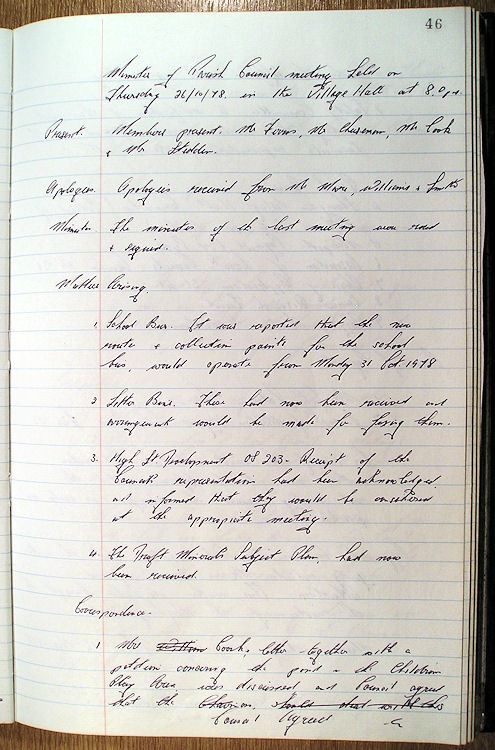 46
Minutes of Parish Council meeting held on
Thursday 26/10/78. in the Village Hall at 8.0pm
Present. Members present. Mr Mr Mr Cook
& Mr
Apologies. Apologies received from Mr Williams &
Minutes The minutes of the last meeting were read
& signed.
Matters Arising.
1. School Bus. It was reported that the new
route & collection points for the school
bus, would operate from Monday 31 Oct. 1978
2 Litter Bins. These had now been received and
would be made for fixing them.
3. High St Development 08 203 - Receipt of the
Councils representation had been acknowledged
and informed that they would be considered
at the appropriate meeting.
4. The Draft Minerals Subject Plan, had now
been received.
Correspondence.
1 Mrs Cook, letter together with a
petition concerning the pond in the Childrens
Play Area was discussed and Council agreed
that the Chairman, should
Council Agreed